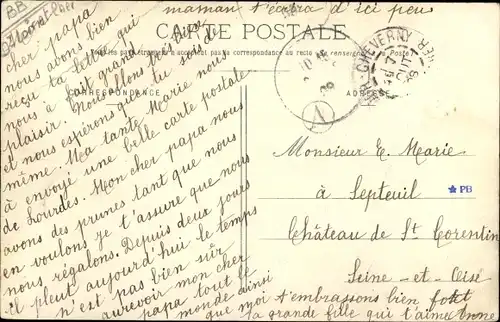 maman t'écrira d'ici peu
CARTE POSTALE
Tous les pays étrangers n'acceptent pas la correspondance au recto (se renseigner à la Poste)
CORRESPONDANCE
ADRESSE
CHEVERNY
A
cher papa
nous avons bien
reçu ta lettre qui
nous a fait grand
plaisir. Nous allons très bien
et nous espérons que tu sois de
même. Ma tante Marie nous
à envoyé une belle carte postale
de Lourdes. Mon cher papa nous
avons des prunes tant que nous
en voulons je t'assure que nous
nous régalons. Depuis deux jours
il pleut aujourd'hui le temps
n'est pas bien sûr
aurevoir mon cher
papa tout le
monde ainsi
que moi t'embrassons bien fort
ta grande fille qui t'aime
Monsieur E. Marie
à Septeuil
PB
Château de St Corentin
Seine-et-Oise